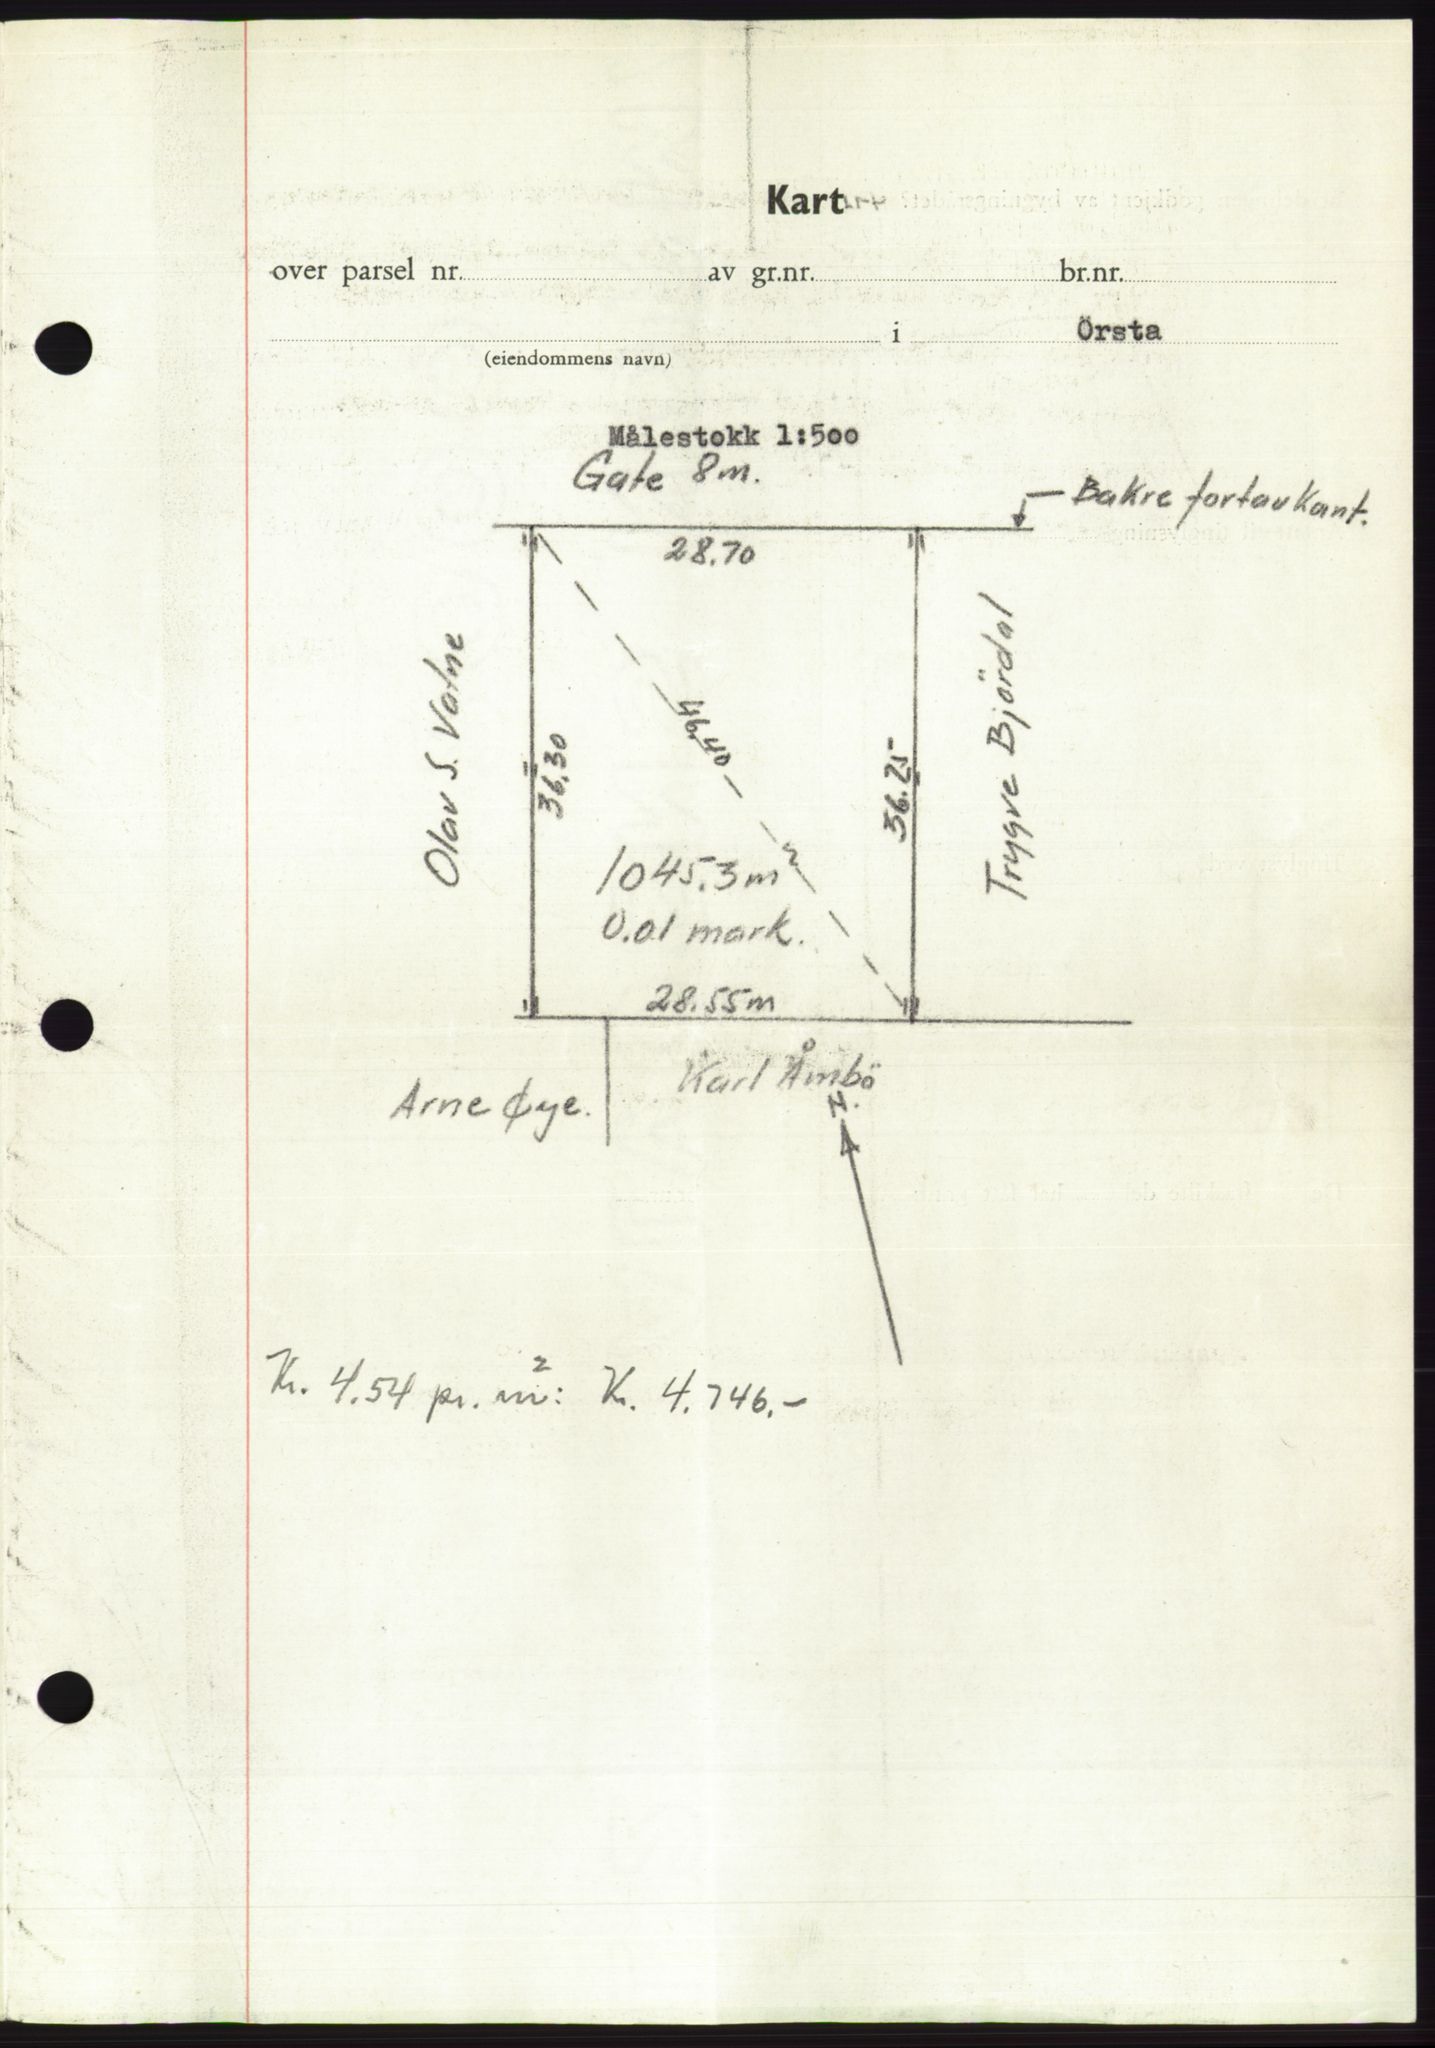 Kart
over parsel nr. av gr.nr. br.nr.
i Örsta
(eiendommens navn)
Målestokk 1:500
Gate 8m.
Bakre fortavkant.
28.70
Olav S. Vatne
36.30
46.40
36.25
Trygve Björdal
1045.3 m²
0.01 mark.
28.55m
Karl Åmbö
Arne Øye.
N.
Kr. 4.54 pr. m²: Kr. 4.746.-